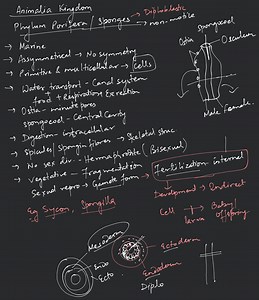 Animalia Kingdom
Phylum Porifera / Sponges → non-motile
Diploblastic
→ Marine
→ Assymmetrical → No symmetry
→ Primitive & multicellular → Cells
→ Water transport - Canal system
food + Respiration + Excretion
→ Ostia - minute pores
spongocoel - Central Cavity
→ Digestion - intracellular
→ Spicules / spongin fibres → Skeletal struc
→ No sex div - Hermaphrodite (Bisexual)
→ Vegetative - fragmentation
Sexual repro → Gamete form → Fertilization internal
Spongocoel
Ostia
Osculum
Male Female
Development → Indirect
Cell → Baby / larva → Offspring
Eg Sycon, Spongilla
Mesoderm
Endo
Ecto
Ectoderm
Endoderm
Diplo